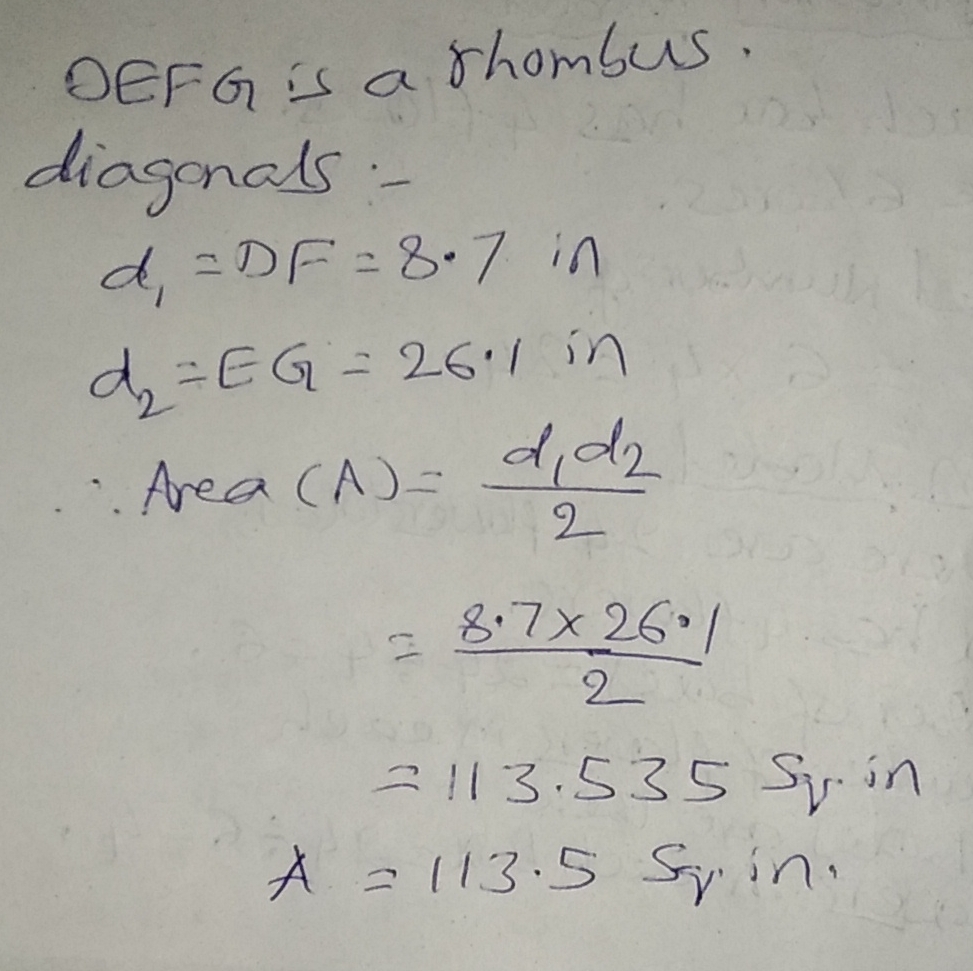 DEFG is a rhombus.
diagonals :-
d₁ = DF = 8.7 in
d₂ = EG = 26.1 in
∴ Area (A) = d₁d₂/2
= 8.7 x 26.1/2
= 113.535 Sq. in
A = 113.5 Sq. in.